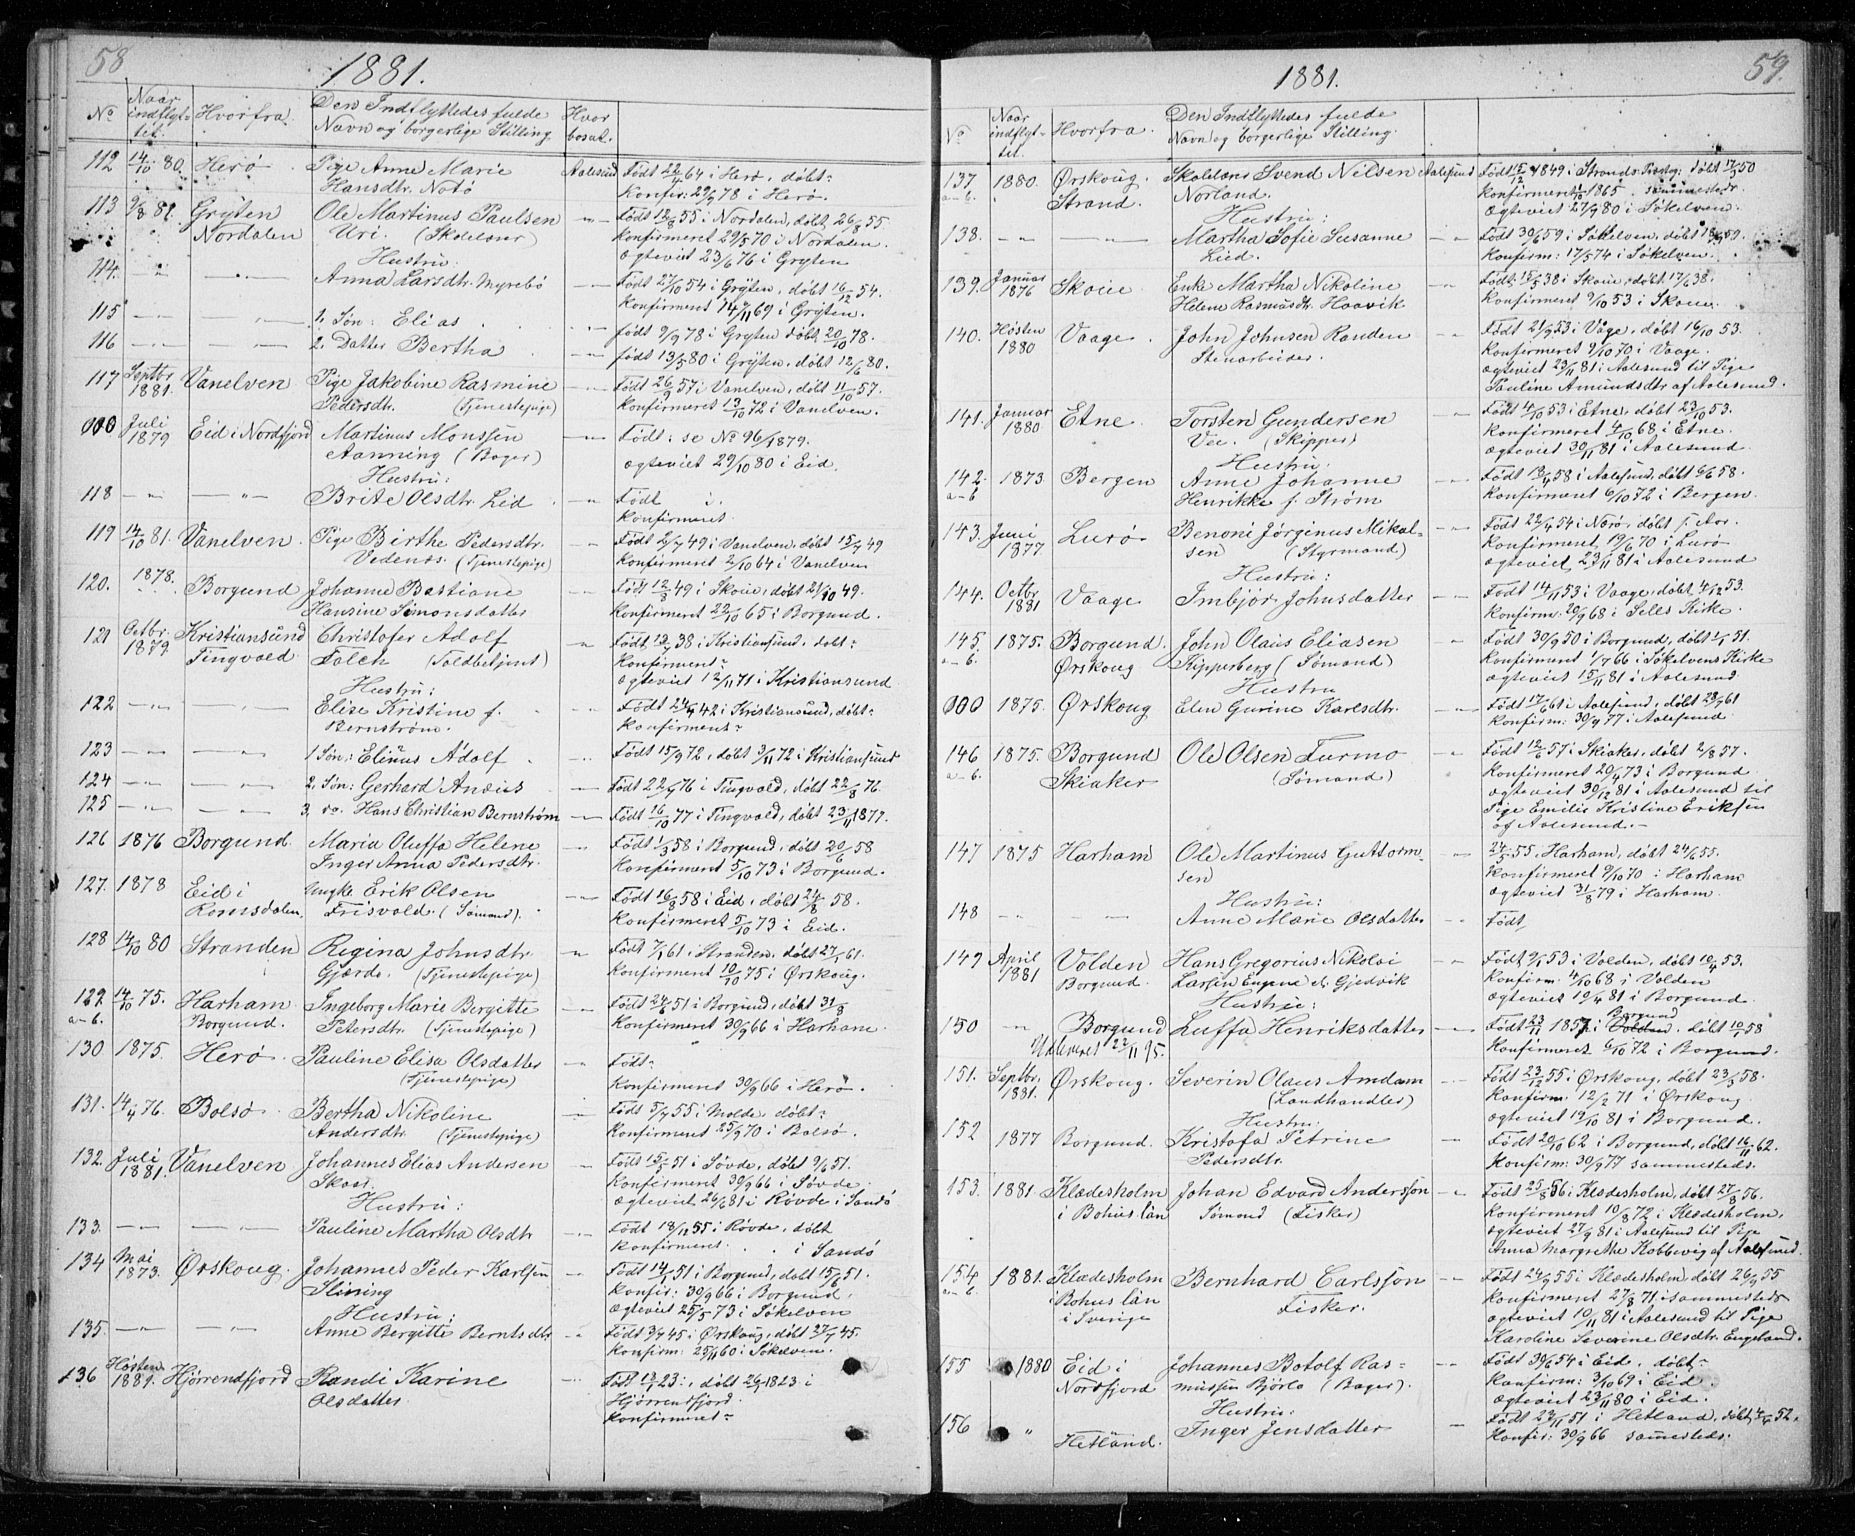 58
1881.
No
Naar indflyttet.
Hvorfra.
Den Indflyttedes fulde Navn og borgerlige Stilling.
Hvor bosat.
112 14/10 80. Herø. Pige Anne Marie Aalesund Født 22/ 64 i Herø, døbt:
Hansdtr. Notø Konfir: 29/9 78 i Herø.
113 9/8 81. Gryten Ole Martinus Paulsen -"- Født 12/8 55 i Nordalen, døbt 26/8 55
Nordalen Uri. (Skolelærer) Konfirmeret 29/5 70 i Nordalen.
Hustru: Ægteviet 23/6 76 i Gryten
114. " -"- Anna Larsdtr. Myrebø -"- Født 27/10 54 i Gryten, døbt 16/12 54.
Konfirmeret 14/11 69 i Gryten.
115 -"- -"- 1. Søn: Elias -"- født 9/9 78 i Gryten døbt 20/10 78.
116 -"- -"- 2. Datter Bertha -"- født 13/5 80 i Gryten, døbt 12/6 80.
117 Septbr. 1881. Vanelven Pige Jakobine Rasmine -"- Født 26/9 57 i Vanelven, døbt 11/10 57.
Pedersdtr. (Tjenestepige) Konfirmeret 13/10 72 i Vanelven.
000 Juli 1879 Eid i Nordfjord Martinus Monssen -"- Født: se No 96/1879.
Aanning (Bager) Ægteviet 29/10 80 i Eid.
Hustru:
118 -"- -"- Brite Olsdtr. Lid -"- Født i
Konfirmeret.
119 14/10 81. Vanelven. Pige Birthe Pedersdtr. -"- Født 2/7 49 i Vanelven, døbt 15/7 49
Vedenæs. (Tjenestepige) Konfirmeret 2/10 64 i Vanelven
120. 1878. Borgund Johanne Bastiane -"- Født 12/3 49 i Skoue, døbt 21/10 49.
Hansine Simonsdatter Konfirmeret 22/10 65 i Borgund.
121 Octbr. 1879 Kristiansund Christofer Adolf " Født 13/ 38 i Kristiansund, døbt:
Tingvold Falch (Toldbetjent) Konfirmeret:
Hustru: Ægteviet 12/11 71 i Kristiansund
122 -"- -"- Elise Kristine f. -"- Født 24/4 42 i Kristiansund, døbt:
Bernstrøm. Konfirmeret:
123 -"- -"- 1 Søn: Elinus Adolf -"- Født 15/9 72, døbt 3/11 72 i Kristiansund
124 -"- -"- 2. Søn: Gerhard Anæus -"- Født 22/ 76 i Tingvold, døbt 22/8 76.
125 -"- -"- 3. do. Hans Christian Bernstrøm -"- Født 16/10 77 i Tingvold, døbt 23/11 1877.
126 1876 Borgund. Maria Oluffa Helene -"- Født 1/3 58 i Borgund, døbt 20/6 58
Inger Anna Pedersdtr. Konfirmeret 5/10 73 i Borgund.
127. 1878 Eid i Romsdalen Ungke Erik Olsen -"- Født 16/8 58 i Eid, døbt 24/8 58.
Frisvold. (Sømand). Konfirmeret 5/10 73 i Eid.
128 14/10 80 Stranden Regina Johnsdtr. " Født 7/1 61 i Stranden, døbt 27/1 61.
Gjærde. (Tjenestepige) Konfirmeret 10/10 75 i Ørskoug.
129. a-b. 14/10 75. Harham Borgund. Ingeborg Marie Bergitte -"- Født 24/6 51 i Borgund, døbt 31/8
Petersdtr. (Tjenestepige) Konfirmeret 30/9 66 i Harham.
130 1875. Herø. Pauline Elisa Olsdatter -"- Født:
(Tjenestepige) Konfirmeret 30/9 66 i Herø.
131. 14/4 76. Bolsø. Bertha Nikoline -"- Født 5/7 55 i Molde, døbt:
Andersdtr. (Tjenestepige) Konfirmeret 25/9 70 i Bolsø.
132. Juli 1881. Vanelven Johannes Elias Andersen -"- Født 15/5 51 i Søvde, døbt 9/6 51.
Skaar. Konfirmeret 30/9 66 i Søvde.
Hustru: Ægteviet 26/6 81 i Røvde i Sandø
133. -"- -"- Pauline Martha Olsdtr -"- Født 18/11 55 i Røvde, døbt
Konfirmeret. i Sandø
134 Mai 1873. Ørskoug. Johannes Peder Karlsen -"- Født 14/ 51 i Borgund, døbt 15/6 51.
Slining Konfir: 30/9 66 i Borgund.
Hustru: Ægteviet 25/5 73 i Søkelven
135. -"- -"- Anne Bergitte Berntsdtr " Født 3/7 45 i Ørskoug, døbt 27/7 45.
Konfirm: 25/11 60 i Søkelven.
136 Høsten 1881. Hjørrendfjord Randi Karine -"- Født 13/ 23:, døbt 26/ 1823 i
Olsdatter. Hjørrendfjord.
Konfirmeret:
59.
1881.
No
Naar indflyttet.
Hvorfra.
Den Indflyttedes fulde Navn og borgerlige Stilling.
137. a-b. 1880. Ørskoug. Skolelærer Svend Nilsen Aalesund Født 15/12 1849 i Strands Præstegj. døbt 17/ 50
Strand. Norland. Konfirmeret 1/10 1865 sammesteds.
Hustru: Ægteviet 27/9 80 i Søkelven.
138. -"- -"- Martha Sofie Susanne -"- Født 30/6 59 i Søkelven, døbt 18/ 59.
Lied. Konfirm: 17/5 74 i Søkelven.
139. Januar 1876 Skoue Enke Martha Nikoline -"- Født 15/5 38 i Skoue, døbt 17/6 38.
Helene Rasmusdtr. Haavik Konfirmeret 9/10 53 i Skoue.
140. Høsten 1880 Vaage. John Johnsen Randen -"- Født 21/9 53 i Våge, døbt 16/10 53.
Stenarbeider. Konfirmeret 9/10 70 i Vaage.
Ægteviet 23/11 81 i Aalesund til Pige
Pauline Amundsdtr af Aalesund.
141. Januar 1880 Etne. Torsten Gundersen -"- Født 4/10 53 i Etne, døbt 23/10 53.
Vee. (Skipper) Konfirmeret 4/10 68 i Etne.
Hustru: Ægteviet 30/11 81 i Aalesund.
142. a-b 1873. Bergen Anne Johanne -"- Født 13/4 58 i Aalesund, døbt 6/6 58.
Henrikke f. Strøm Konfirmeret 6/10 72 i Bergen.
143. Juni 1877 Lurø. Benoni Jørginus Mikal- -"- Født 22/4 54 i Norø, døbt s. Aar.
sen (Styrmand) Konfirmeret 19/6 70 i Lurø
Hustru: Ægteviet 23/11 81 i Aalesund
144. Octbr. 1881 Vaage Imbjør Johnsdatter -"- Født 14/11 53 i Vaage, døbt 4/12 53.
Konfirm: 20/9 68 i Sells Kirke.
145. a-b. 1875. Borgund. John Olais Eliasen -"- Født 30/9 50 i Borgund, døbt 1/1 51.
Ørskoug Ripperberg (Sømand) Konfirmeret 1/7 66 i Søkelvens Kirke
Hustru Ægteviet 15/11 81 i Aalesund.
000 1875. Ørskoug Elen Gurine Karlsdtr. -"- Født 17/6 61 i Aalesund, døbt 23/ 61
Konfirm: 30/9 77 i Aalesund.
146 a-b. 1875. Borgund Ole Olsen Furmo -"- Født 12/6 57 i Skiaker, døbt 2/8 57.
Skiaker (Sømand) Konfirmeret 20/4 73 i Borgund
Ægteviet 30/12 81 i Aalesund til
Pige Emilie Kristine Eriksen
af Aalesund.-
147 1875 Harham Ole Martinus Guttorm- -"- 24/5 55, Harham, døbt 24/6 55.
sen Konfirmeret 9/10 70 i Harham
Hustru: Ægteviet 31/8 79 i Harham.
148 -"- -"- Anne Marie Olsdatter -"- Født,
149 April 1881 Volden Hans Gregorius Nikolai -"- Født 9/1 53 i Volden, døbt 10/4 53.
Borgund. Larsen Eugene Gjedvik Konfirm: 4/10 68 i Volden
Hustru: Ægteviet 19/4 81 i Borgund
150 -"- Borgund Luffa Henriksdatter -"- Født 23/11 1857 i Borgund. døbt 10/1 58
Udleveret 22/11 95. Konfirmeret 6/10 72 i Borgund.
151. Septbr. 1881. Ørskoug. Severin Olaus Amdam -"- Født 23/12 55 i Ørskoug, døbt 23/3 58.
(Landhandler) Konfirm: 12/2 71 i Ørskoug
Hustru: Ægteviet 19/10 81 i Borgund.
152 1877 Borgund. Kristofa Petrine -"- Født 20/10 62 i Borgund, døbt 16/11 62.
Pedersdtr. Konfirm: 30/9 77 sammesteds.
153. 1881 Klædesholm Johan Edvard Andersson -"- Født 25/8 56 i Klædesholm, døbt 27/8 56.
i Bohus län Sømand (Fisker) Konfirmeret 10/8 72 i Klædesholm,
Ægteviet 27/9 81 i Aalesund til Pige
Anna Margrethe Kobbevig af Aalesund.
154 a-b. 1881. Klædesholm Bernhard Carlsson -"- Født 24/9 55 i Klædesholm, døbt 26/9 55
i Bohus län Fisker. Konfirmeret 27/8 71 i sammesteds
i Sverige Ægteviet 10/11 81 i Aalesund til Pige
Karoline Severine Olsdtr. Engeland.
155 1880 Eid i Johannes Botolf Ras= -"- Født 30/6 54 i Eid, døbt:
Nordfjord mussen Bjørlo (Bager). Konfirm: 3/10 69 i Eid.
Hustru: Ægteviet 23/11 80 i Eid.
156 " Hetland. Inger Jensdatter - Født 22/11 51 i Hetland, døbt 4/ 52.
Konfir: 30/9 66 sammesteds.